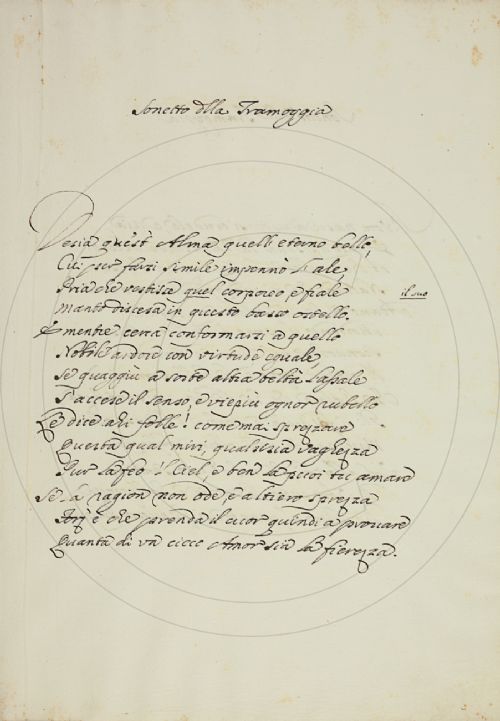 Sonetto dlla Tramoggia
Desia quest Alma quell eterno bello,
Cui per farsi simile impennò l ale,
Pria che vestisse quel corporeo e frale il suo
Manto discesa in questo basso ostello.
E mentre cerca conformarsi a quello
Nobile ardore con virtude equale,
Se quaggiù a sorte altra beltà l assale
S accese il senso, e viepiù ognor rubello
Le dice ahi folle! come mai sprezzare
Questa qual miri, qualsisia vaghezza
Pur la feo l Ciel, e ben la puoi tu amare
Se la ragion non ode e altiero sprezza
Forz è che prenda il cuor quindi a provare
Quanta di un cieco Amor sia la fierezza.